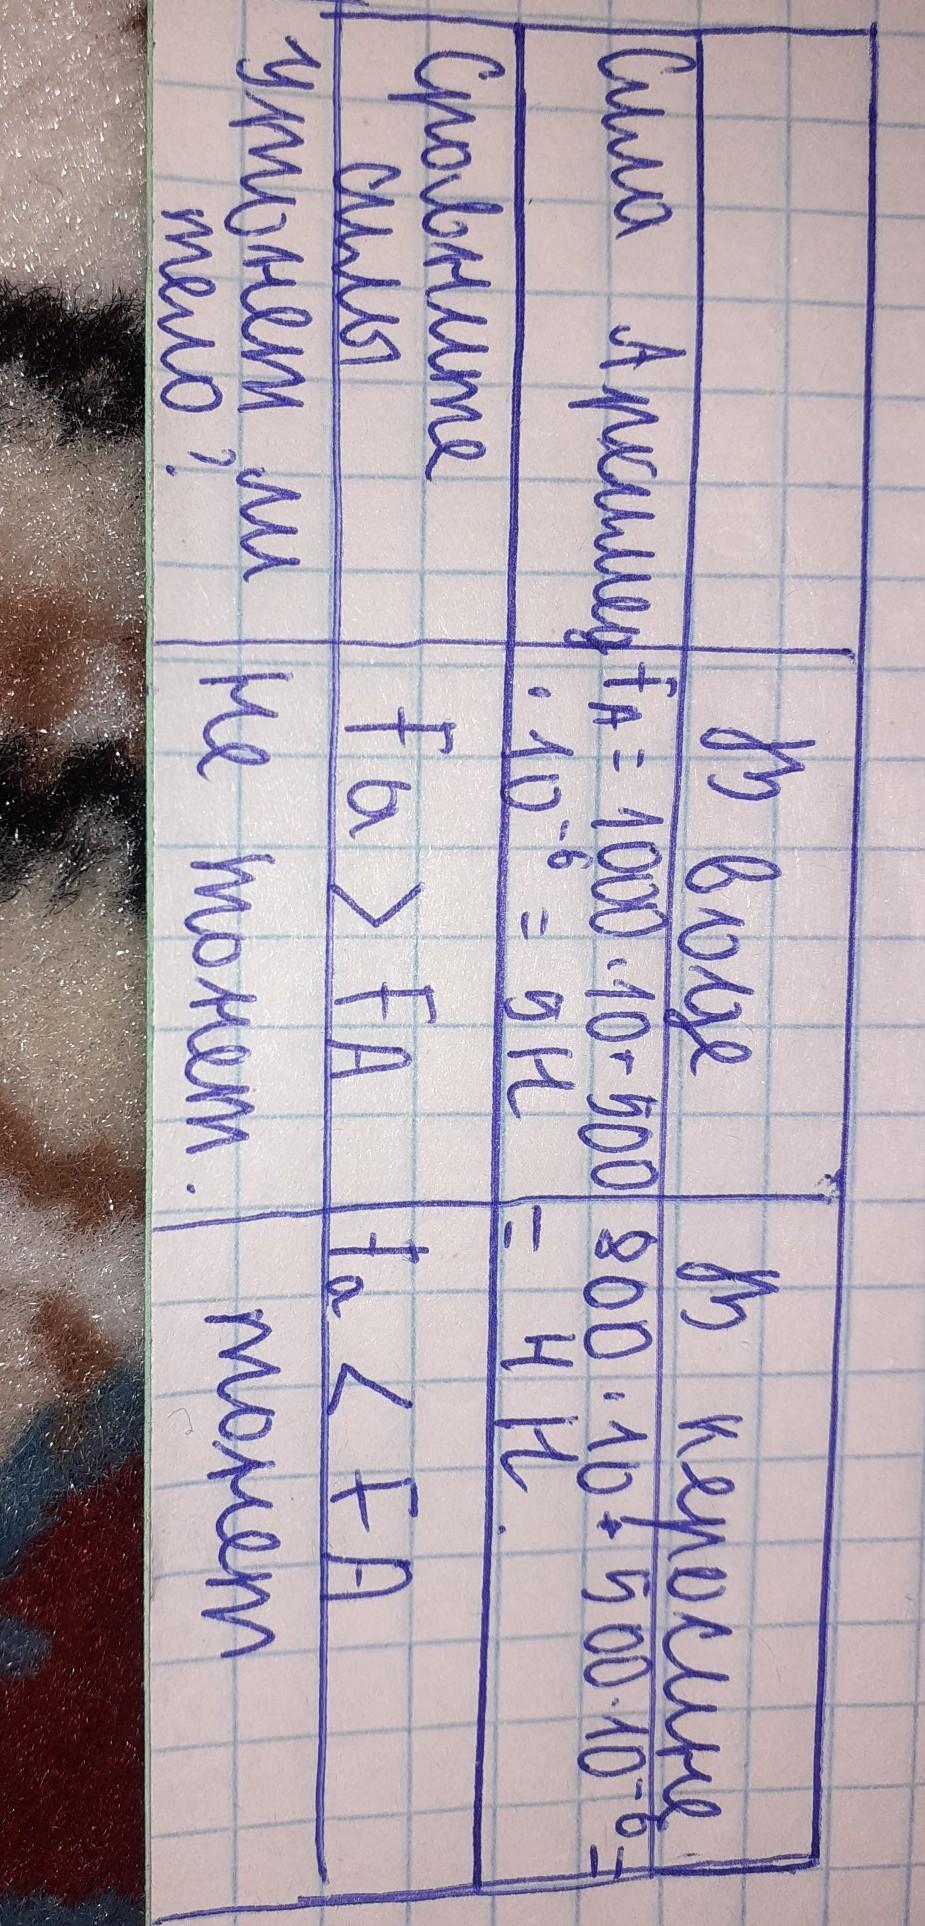 В воде
В керосине
Сила Архимед
FA = 1000 · 10 · 500
· 10⁻⁶ = 5Н
800 · 10 · 500 · 10⁻⁶ =
= 4 Н.
Сравните
силы
Fa > FA
Fa < FA
Утонет ли
тело?
Не тонет.
тонет